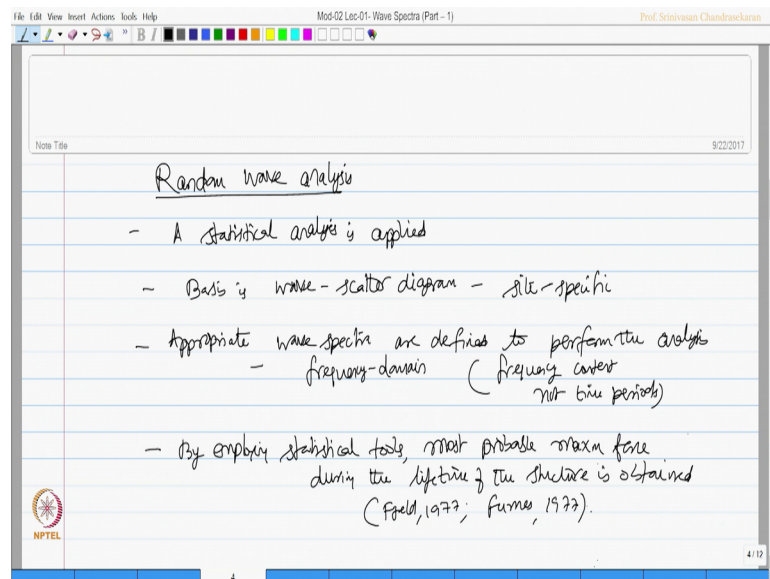 File Edit View Insert Actions Tools Help
Mod-02 Lec-01- Wave Spectra (Part – 1)
Prof. Srinivasan Chandrasekaran
B I
Note Title
9/22/2017
Random wave analysis
- A statistical analysis is applied
- Basis is wave-scatter diagram - site-specific
- Appropriate wave spectra are defined to perform the analysis
- frequency-domain (frequency content
not time periods)
- By employing statistical tools, most probable maxm force
during the lifetime of the structure is obtained
(Fjeld, 1977; Furnes, 1977).
NPTEL
4 / 12
4